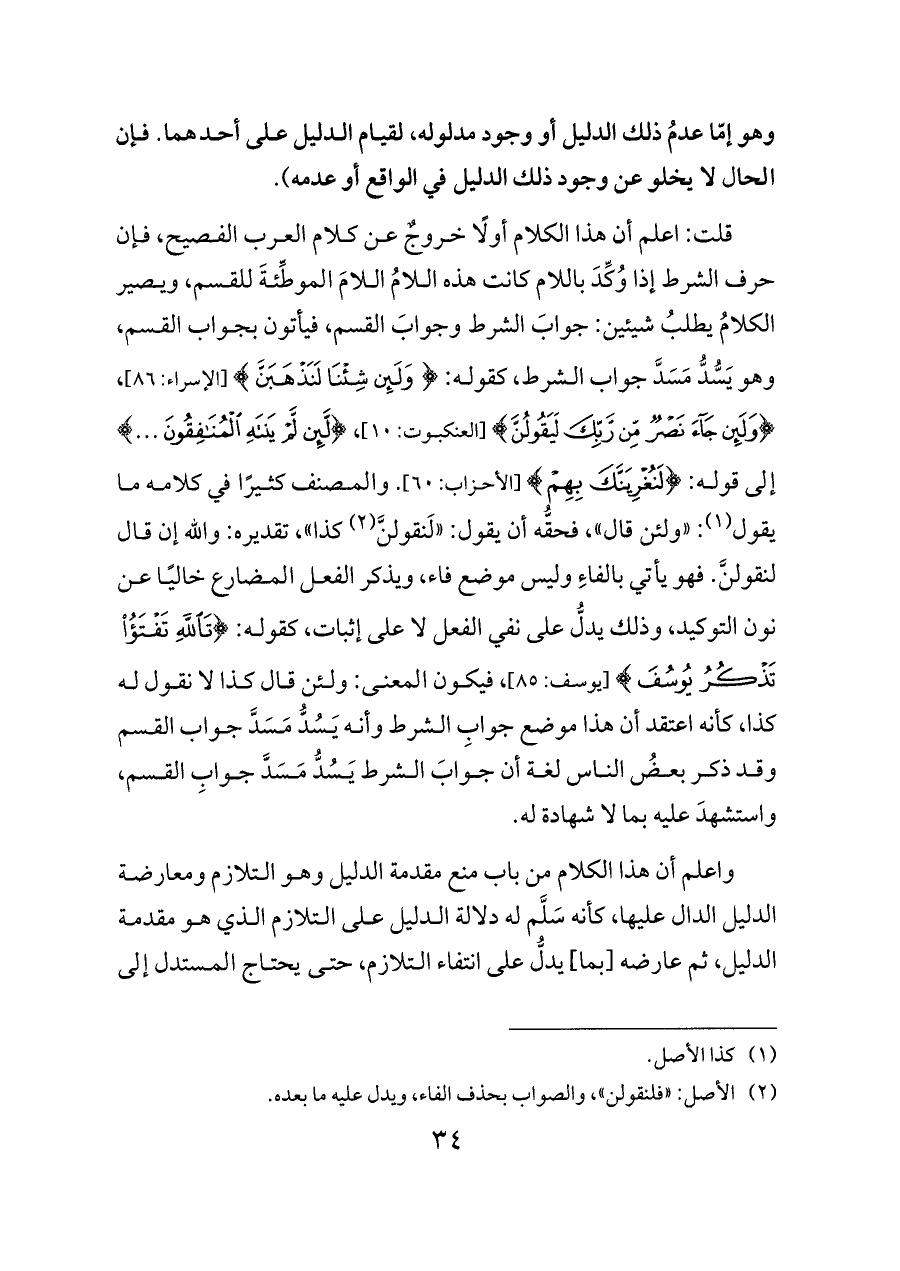 وهو إمّا عدمُ ذلك الدليل أو وجود مدلوله، لقيام الدليل على أحدهما. فإن
الحال لا يخلو عن وجود ذلك الدليل في الواقع أو عدمه).
قلت: اعلم أن هذا الكلام أولًا خروجٌ عن كلام العرب الفصيح، فإن
حرف الشرط إذا وُكِّدَ باللام كانت هذه اللامُ اللامَ الموطِّئةَ للقسم، ويصير
الكلامُ يطلبُ شيئين: جوابَ الشرط وجوابَ القسم، فيأتون بجواب القسم،
وهو يَسُدُّ مَسَدَّ جواب الشرط، كقوله: ﴿ وَلَئِن شِئْنَا لَنَذْهَبَنَّ ﴾ [الإسراء: ٨٦]،
﴿وَلَئِن جَآءَ نَصْرٌ مِّن رَّبِّكَ لَيَقُولُنَّ﴾ [العنكبوت: ١٠]، ﴿لَّئِن لَّمْ يَنتَهِ ٱلْمُنَٰفِقُونَ ...﴾
إلى قوله: ﴿لَنُغْرِيَنَّكَ بِهِمْ﴾ [الأحزاب: ٦٠]. والمصنف كثيرًا في كلامه ما
يقول(١): «ولئن قال»، فحقُّه أن يقول: «لَنقولنَّ(٢) كذا»، تقديره: والله إن قال
لنقولنَّ. فهو يأتي بالفاءِ وليس موضع فاء، ويذكر الفعل المضارع خاليًا عن
نون التوكيد، وذلك يدلُّ على نفي الفعل لا على إثبات، كقوله: ﴿تَٱللَّهِ تَفْتَؤُا۟
تَذْكُرُ يُوسُفَ ﴾ [يوسف: ٨٥]، فيكون المعنى: ولئن قال كذا لا نقول له
كذا، كأنه اعتقد أن هذا موضع جوابِ الشرط وأنه يَسُدُّ مَسَدَّ جواب القسم
وقد ذكر بعضُ الناس لغة أن جوابَ الشرط يَسُدُّ مَسَدَّ جوابِ القسم،
واستشهدَ عليه بما لا شهادة له.
واعلم أن هذا الكلام من باب منع مقدمة الدليل وهو التلازم ومعارضة
الدليل الدال عليها، كأنه سَلَّم له دلالة الدليل على التلازم الذي هو مقدمة
الدليل، ثم عارضه [بما] يدلُّ على انتفاء التلازم، حتى يحتاج المستدل إلى
(١) كذا الأصل.
(٢) الأصل: «فلنقولن»، والصواب بحذف الفاء، ويدل عليه ما بعده.
٣٤